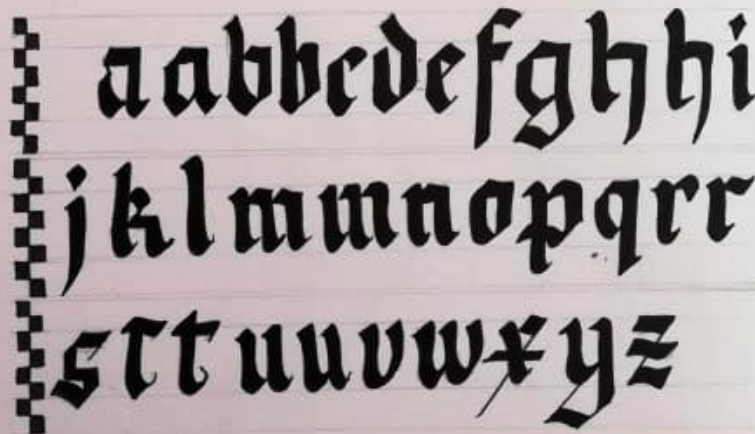 aabbcdefghhi
jklmmnopqrr
sttuuvwxyz